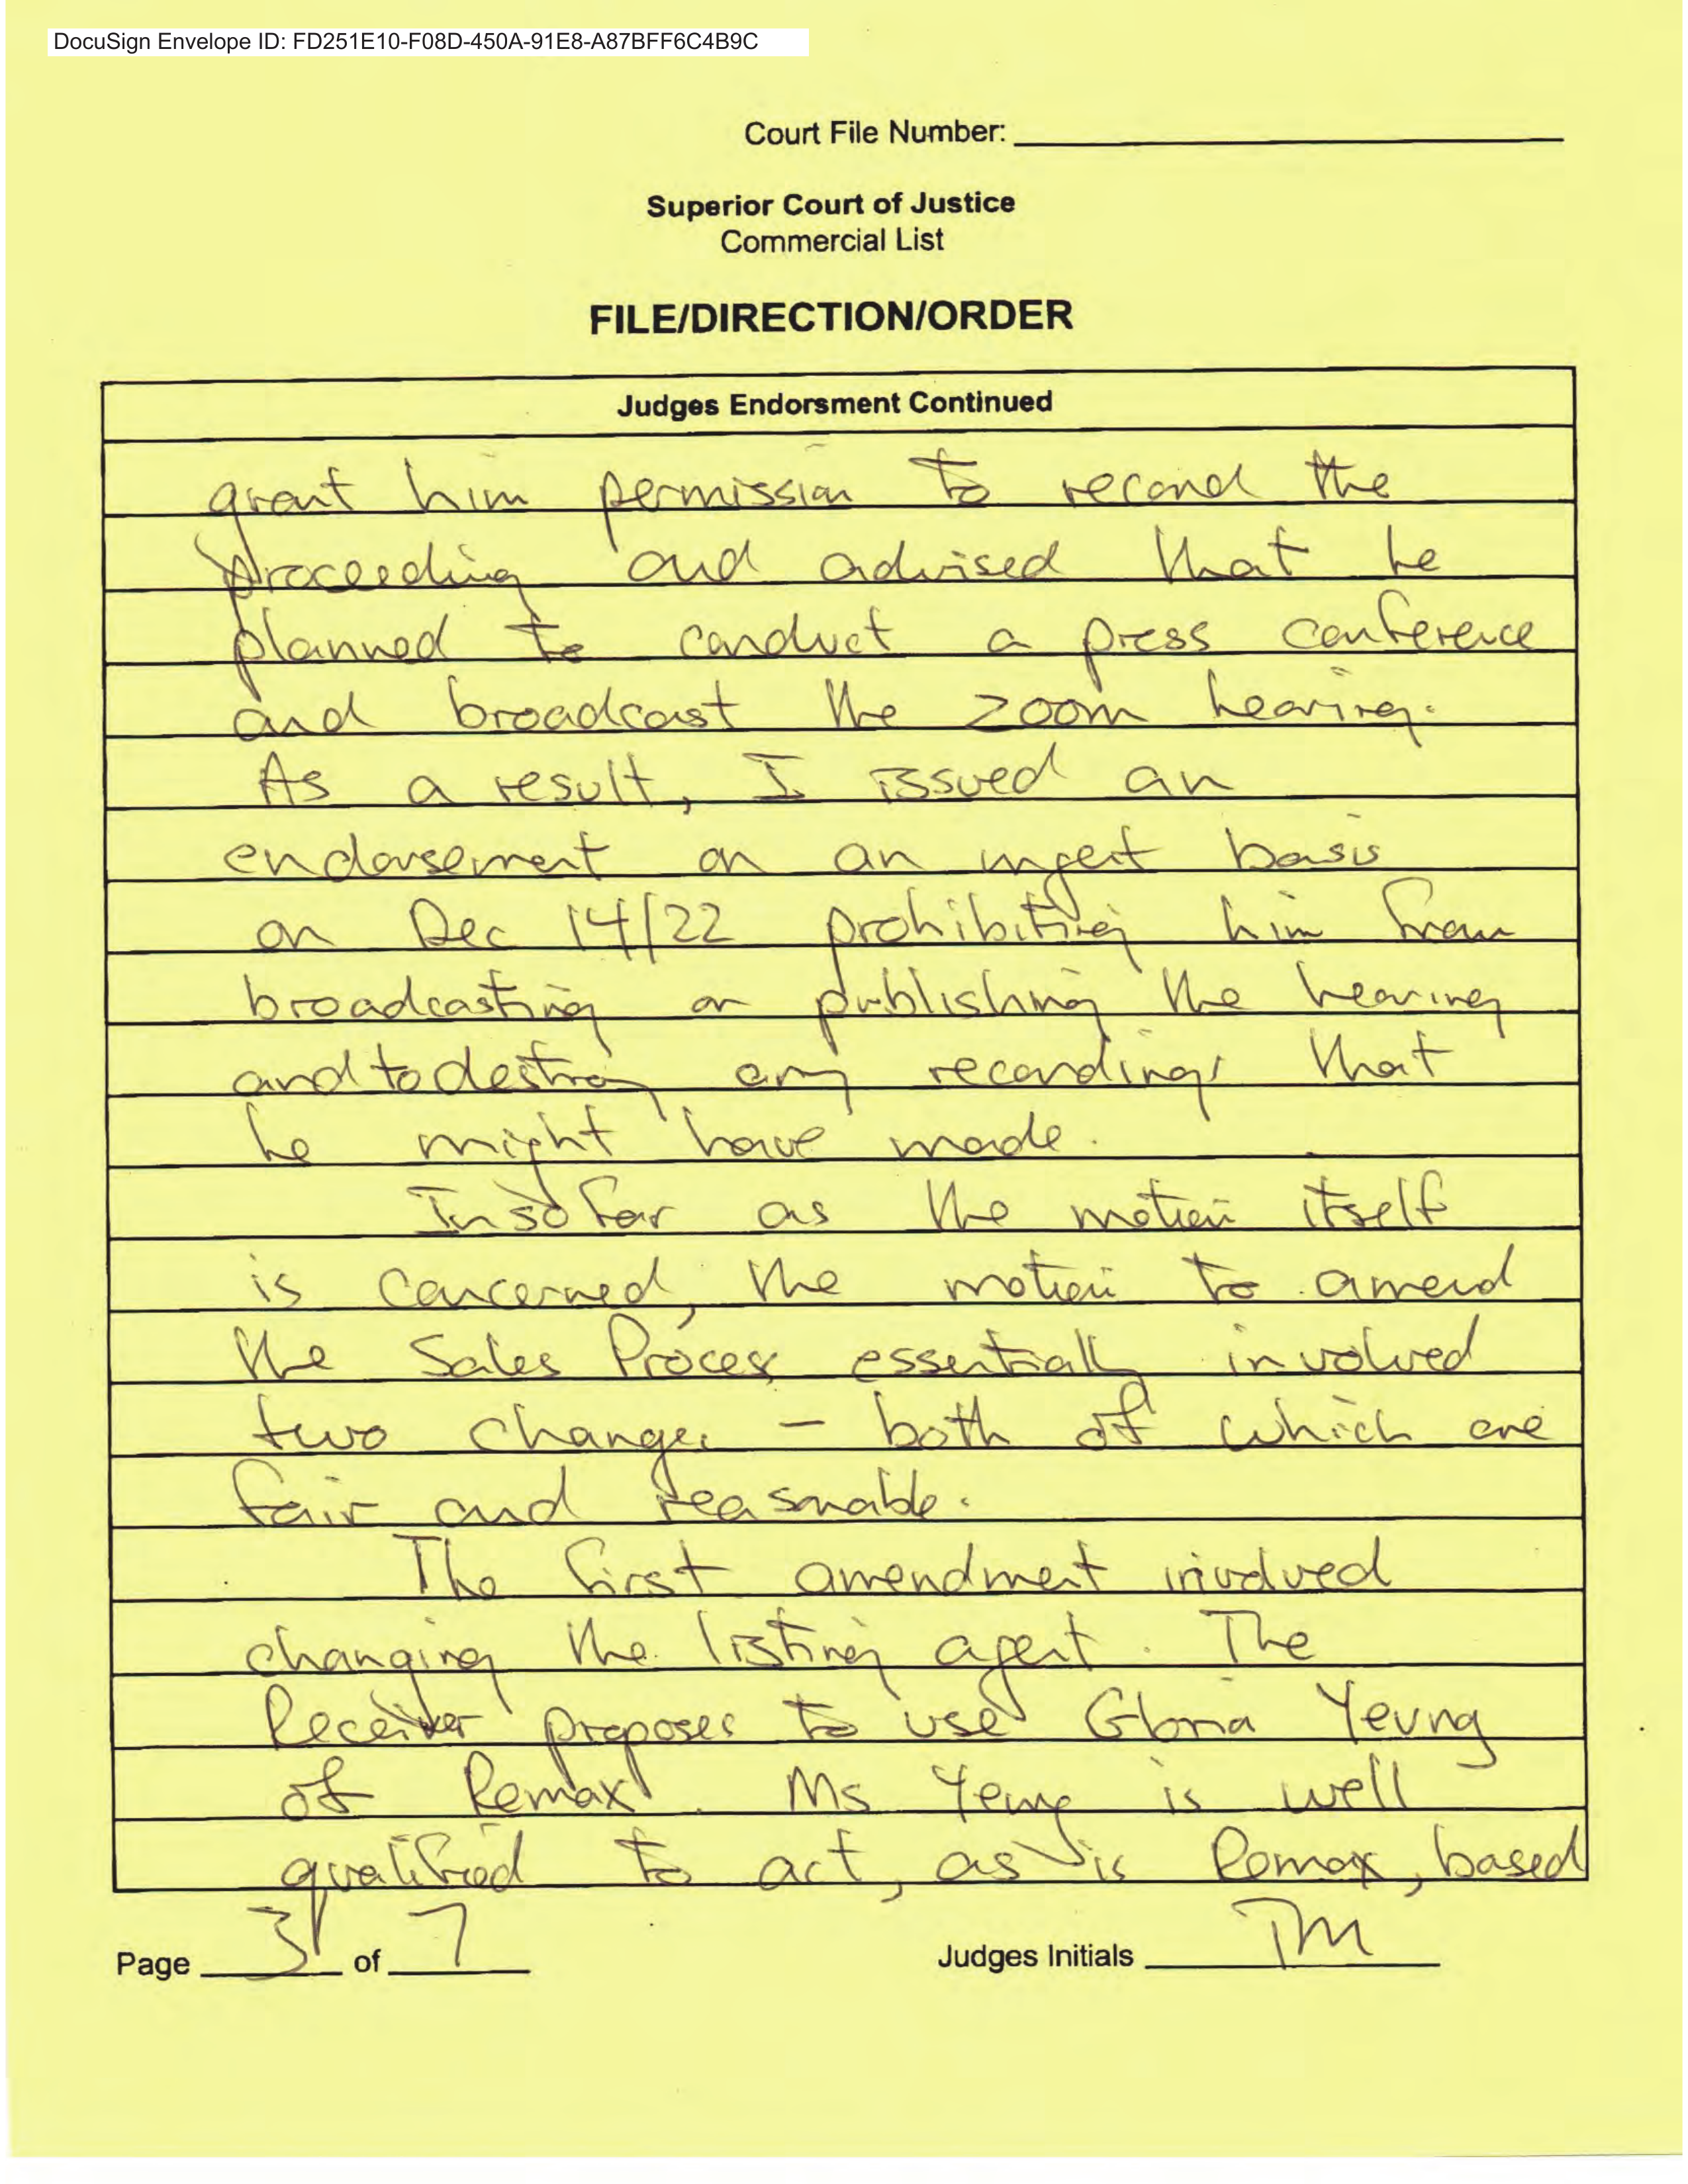 DocuSign Envelope ID: FD251E10-F08D-450A-91E8-A87BFF6C4B9C
Court File Number:
Superior Court of Justice
Commercial List
FILE/DIRECTION/ORDER
Judges Endorsment Continued
grant him permission to record the
proceeding and advised that he
planned to conduct a press conference
and broadcast the zoom hearing.
As a result, I issued an
endorsement on an urgent basis
on Dec 14/22 prohibiting him from
broadcasting or publishing the hearing
and to destroy any recordings that
he might have made.
Insofar as the motion itself
is concerned, the motion to amend
the Sales Process essentially involved
two changes - both of which are
fair and reasonable.
The first amendment involved
changing the listing agent. The
Receiver proposes to use Gloria Yeung
of Remax. Ms Yeung is well
qualified to act, as is Remax, based
Page 3 of 7
Judges Initials TM